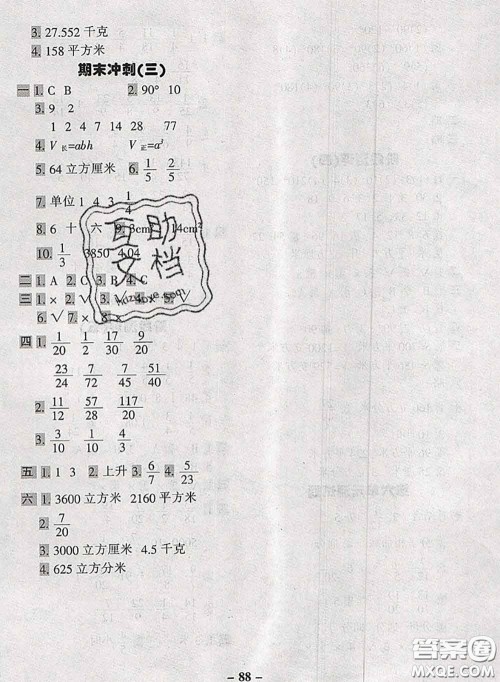 3. 27.552 千克
4. 158 平方米
期末冲刺(三)
一 1. C B 2. 90° 10
3. 9 2
1 2 4 7 14 28 77
4. V长=abh V正=a³
5. 64 立方厘米 6. 1/5 2/5
7. 单位 1 4 3 1/4
8. 6 十 六 9. 3cm 14cm²
10. 1/3 3850 4.04
二 1. A 2. C 3. B 4. C
三 1. × 2. √ 3. 4. 5. √
6. √ 7. × 8. ×
四 1. 1/20 1/2 17/30 9/20
23/24 7/72 7/8 44/51
2. 11/12 57/28 117/40
3. 3/10 1/10 4/3
五 1. 1 3 2. 上升 3. 6/7 4. 5/23
六 1. 3600 立方米 2160 平方米
2. 7/20
3. 3000 立方厘米 4.5 千克
4. 625 立方分米
互助
文档
- 88 -
答案圈
MXQE.COM